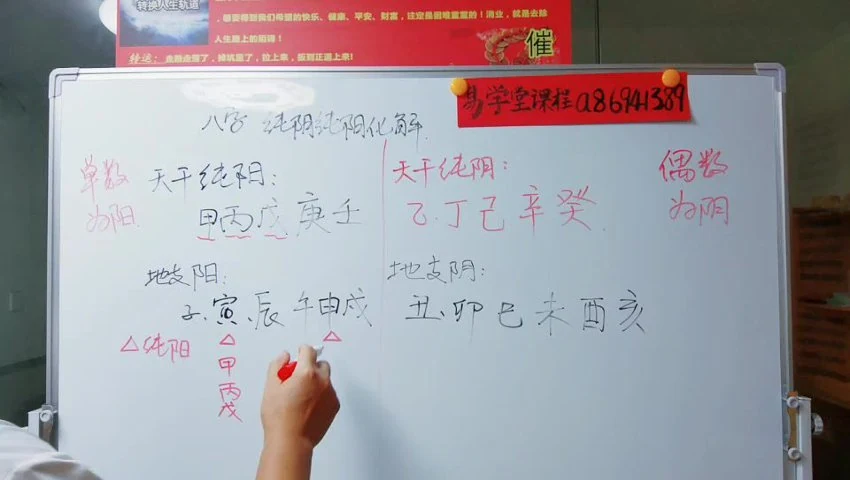 转换人生轨道
，要得到我们希望的快乐、健康、平安、财富，注定是困难重重的！消业，就是去除
人生路上的阻碍！
转运：走路走偏了，掉坑里了，拉上来，扳到正道上来！
催
易学堂课程a86941389
八字 纯阴纯阳化解
单数
为阳
天干纯阳：
甲丙戊庚壬
天干纯阴：
乙.丁己辛癸
偶数
为阴
地支阳：
子、寅、辰午申戌
地支阴：
丑、卯巳未酉亥
△纯阳
△
甲
丙
戊
△